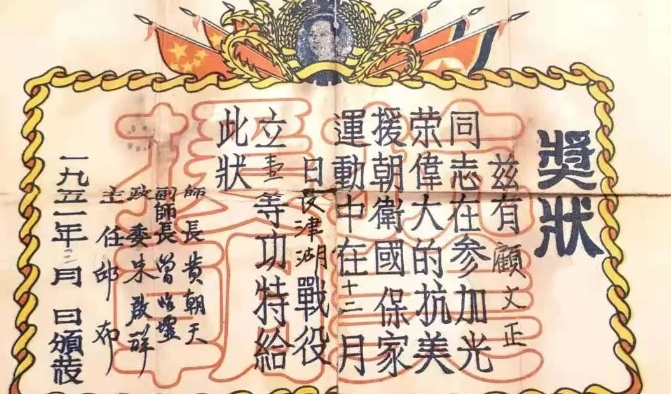 獎狀
兹有顧文正
同志在參加光
荣偉大的抗美
援朝衛國保家
運動中在十二月
日長津湖戰役
立壹等功特給
此狀
師長黃朝天
副師長曾昭墟
政委朱啟祥
主任邱布
一九五一年三月 日頒發